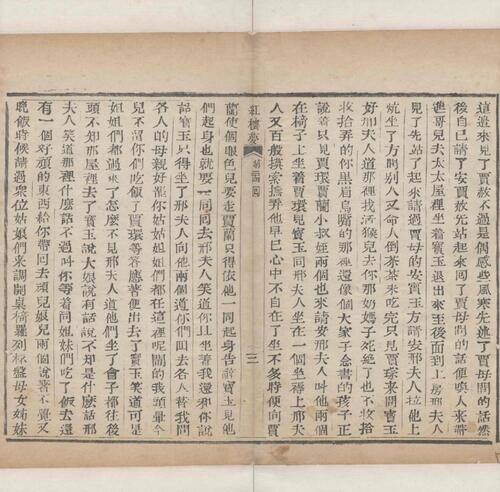 這邊來見了賈赦不過是偶感些風寒先進了賈母問的話然
後自己請了安賈赦先站起來囘了賈母問的話便喚人來帶
進哥兒去太太屋裡坐着寶玉退出來至後面到上房邢夫人
見了先站了起來請過賈母的安寶玉方請安邢夫人拉他上
炕坐了方問别人又命人倒茶茶未吃完只見賈琮來問寶玉
好邢夫人道那裡找活猴兒去你那奶媽子死絶了也不收拾
收拾弄的你黑眉烏嘴的那裡還像個大家子念書的孩子正
說着只見賈環賈蘭小叔姪兩個也來請安邢夫人叫他兩個
在椅子上坐着賈環見寶玉同邢夫人坐在一個坐褥上邢夫
人又百般摸索撫弄他早已心中不自在了坐不多時便向賈
紅樓夢
三
蘭使個眼色兒要走賈蘭只得依他一同起身告辭寶玉見他
們起身也就要一同囘去邢夫人笑道你且坐着我還和你說
話寶玉只得坐了邢夫人向他兩個道你們囘去各人替我問
各人的母親好罷你姑姑姐姐們都在這裡呢鬧的我頭暈今
兒不留你們吃飯了賈環等答應着便出去了寶玉笑道可是
姐姐們都過來了怎麽不見邢夫人道他們坐了會子都往後
頭不知那屋裡去了寶玉說大娘說有話說不知是什麽話邢
夫人笑道那裡什麽話不過叫你等着同姐妹們吃了飯去還
有一個好頑的東西給你帶囘去頑兒娘兒兩個說着不覺又
晚飯時候請過衆位姑娘們來調開桌椅羅列杯盤母女姊妹